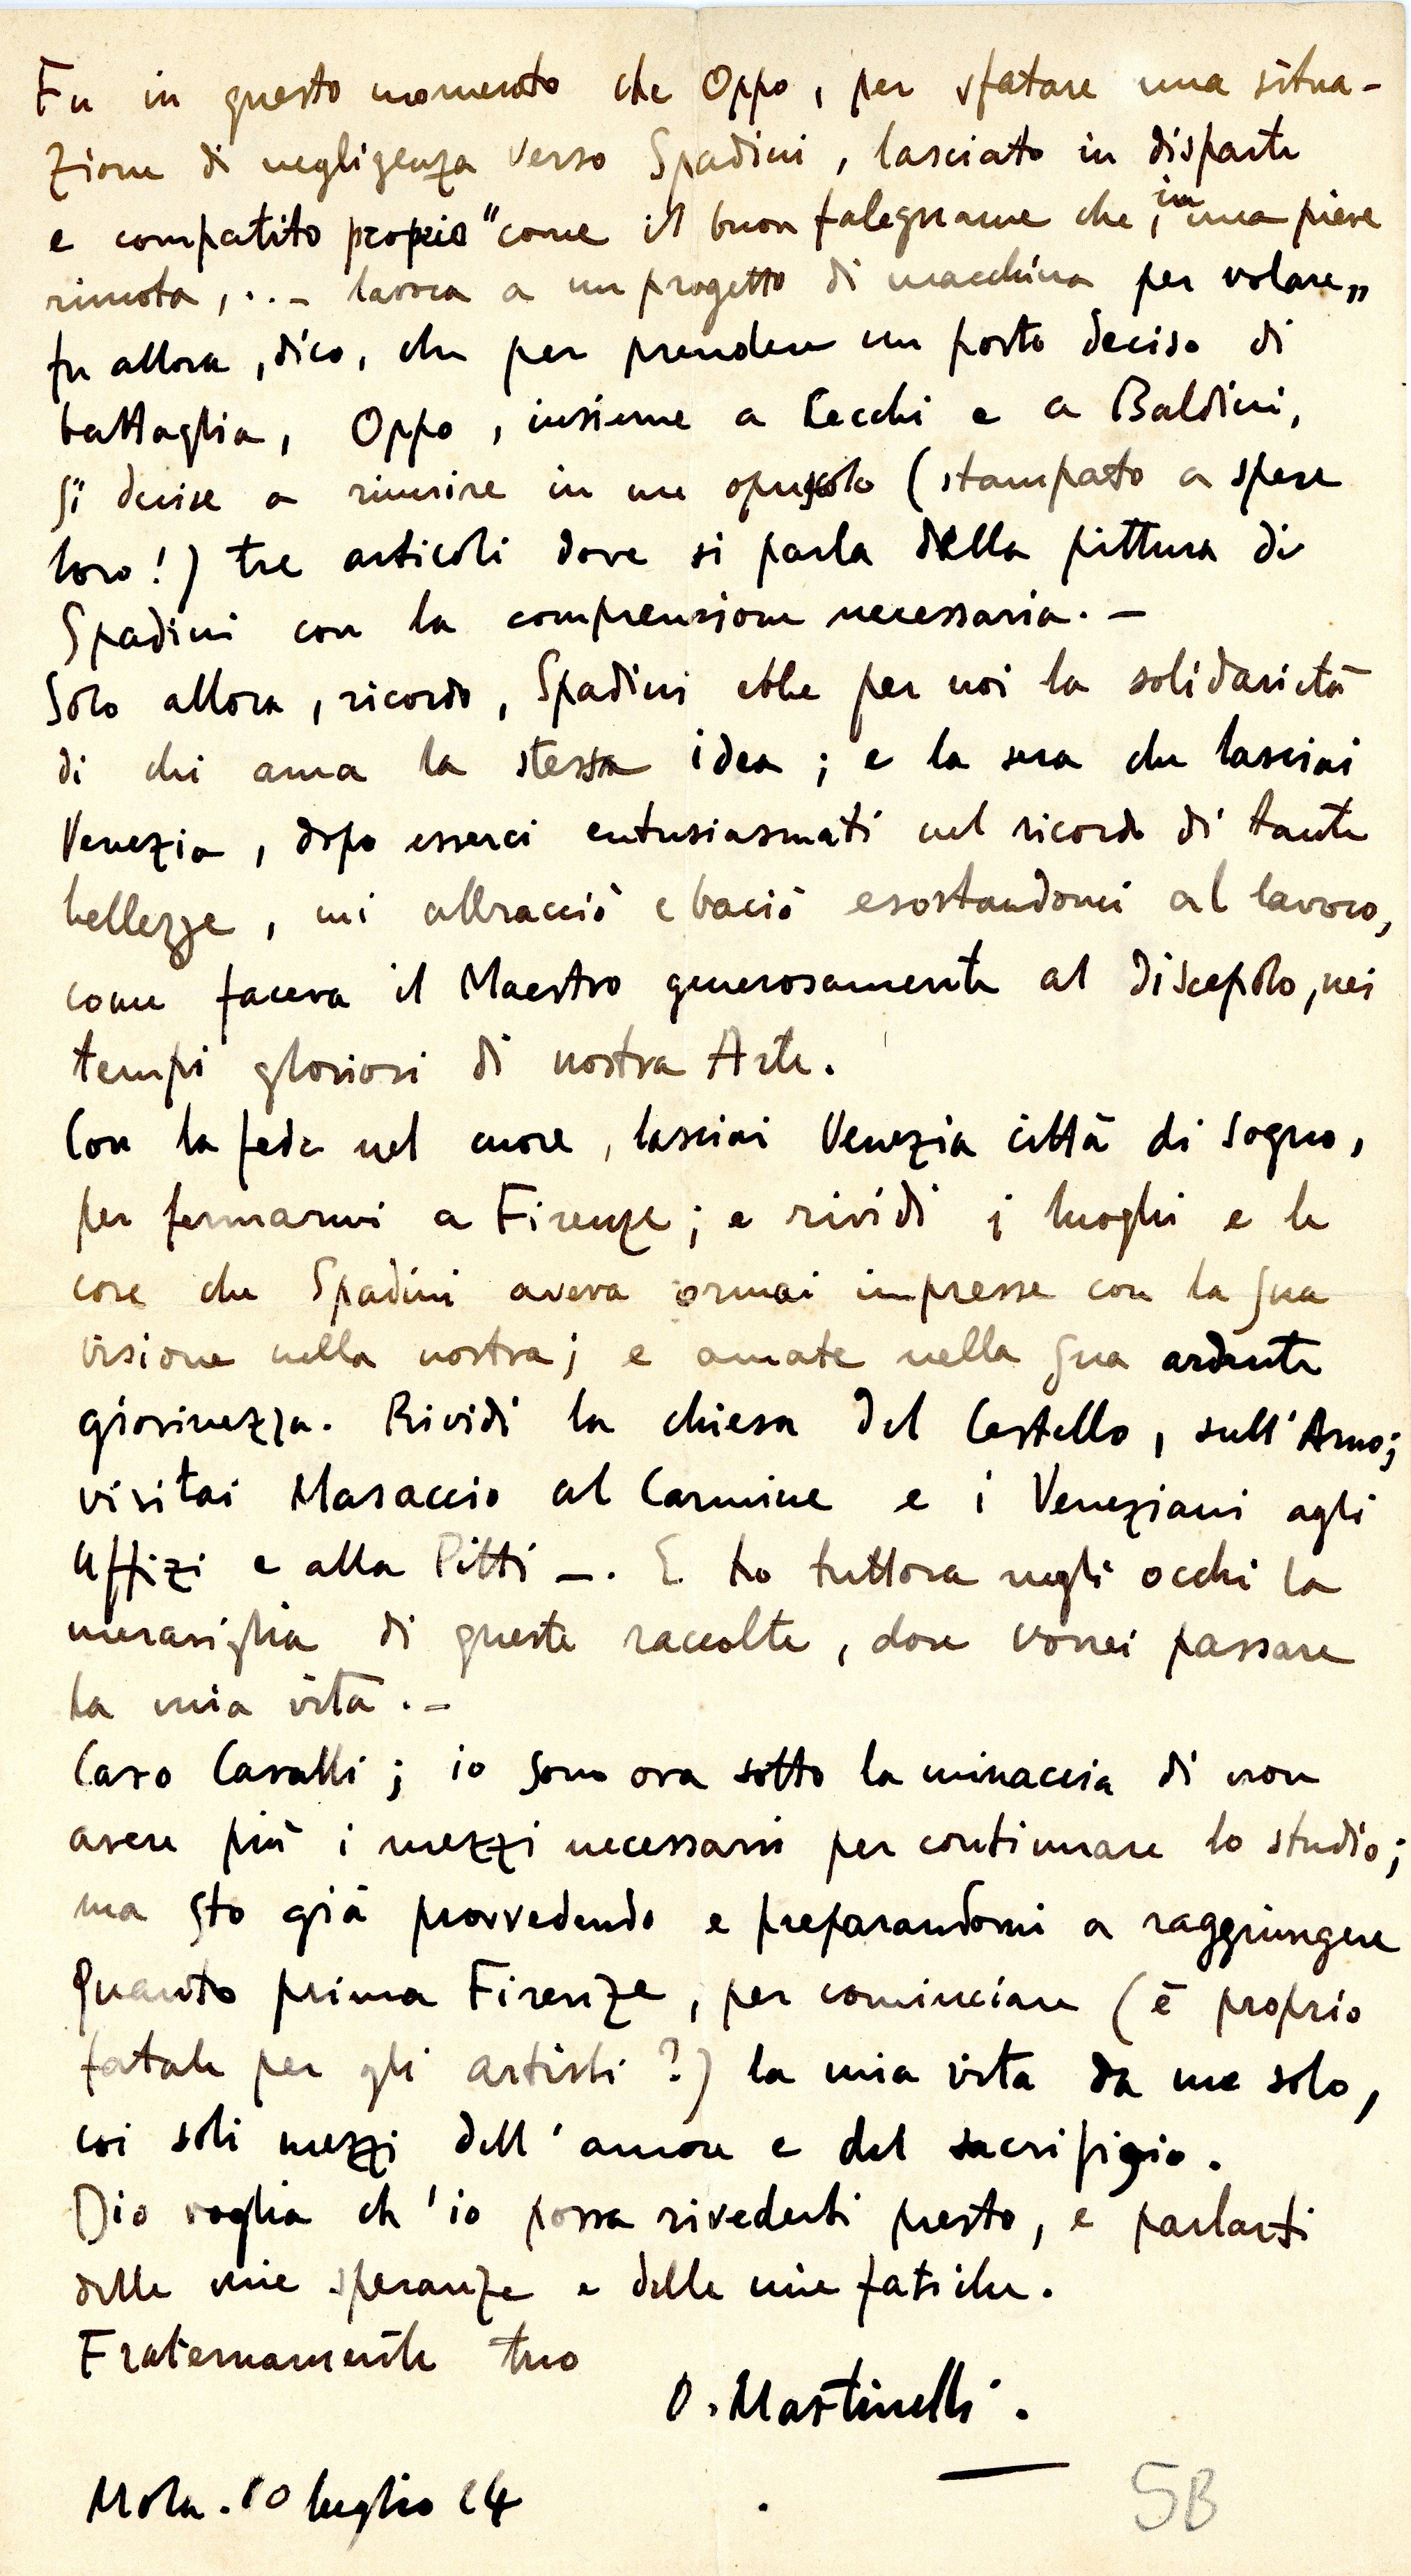 Fu in questo momento che Oppo, per sfatare una situa-
zione di negligenza verso Spadini, lasciato in disparte
e compatito proprio "come il buon falegname che, in una pieve
rimota, ... lavora a un progetto di macchina per volare„
fu allora, dico, che per prendere un posto deciso di
battaglia, Oppo, insieme a Cecchi e a Baldini,
si decise a riunire in un opuscolo (stampato a spese
loro!) tre articoli dove si parla della pittura di
Spadini con la comprensione necessaria. -
Solo allora, ricordo, Spadini ebbe per noi la solidarietà
di chi ama la stessa idea; e la sera che lasciai
Venezia, dopo esserci entusiasmati nel ricordo di tante
bellezze, mi abbracciò e baciò esortandomi al lavoro,
come faceva il Maestro generosamente al discepolo, nei
tempi gloriosi di nostra Arte.
Con la fede nel cuore, lasciai Venezia città di sogno,
per fermarmi a Firenze; e rividi i luoghi e le
cose che Spadini aveva ormai impresse con la sua
visione nella nostra; e amate nella sua ardente
giovinezza. Rividi la chiesa del Cestello, sull'Arno;
visitai Masaccio al Carmine e i Veneziani agli
Uffizi e alla Pitti -. E ho tuttora negli occhi la
meraviglia di queste raccolte, dove vorrei passare
la mia vita. -
Caro Cavalli; io sono ora sotto la minaccia di non
avere più i mezzi necessari per continuare lo studio;
ma sto già provvedendo e preparandomi a raggiungere
quanto prima Firenze, per cominciare (è proprio
fatale per gli artisti?) la mia vita da me solo,
coi soli mezzi dell'amore e del sacrifizio.
Dio voglia ch'io possa rivederti presto, e parlarti
delle mie speranze e delle mie fatiche.
Fraternamente tuo
O. Martinelli.
Mola. 10 luglio 24
5B